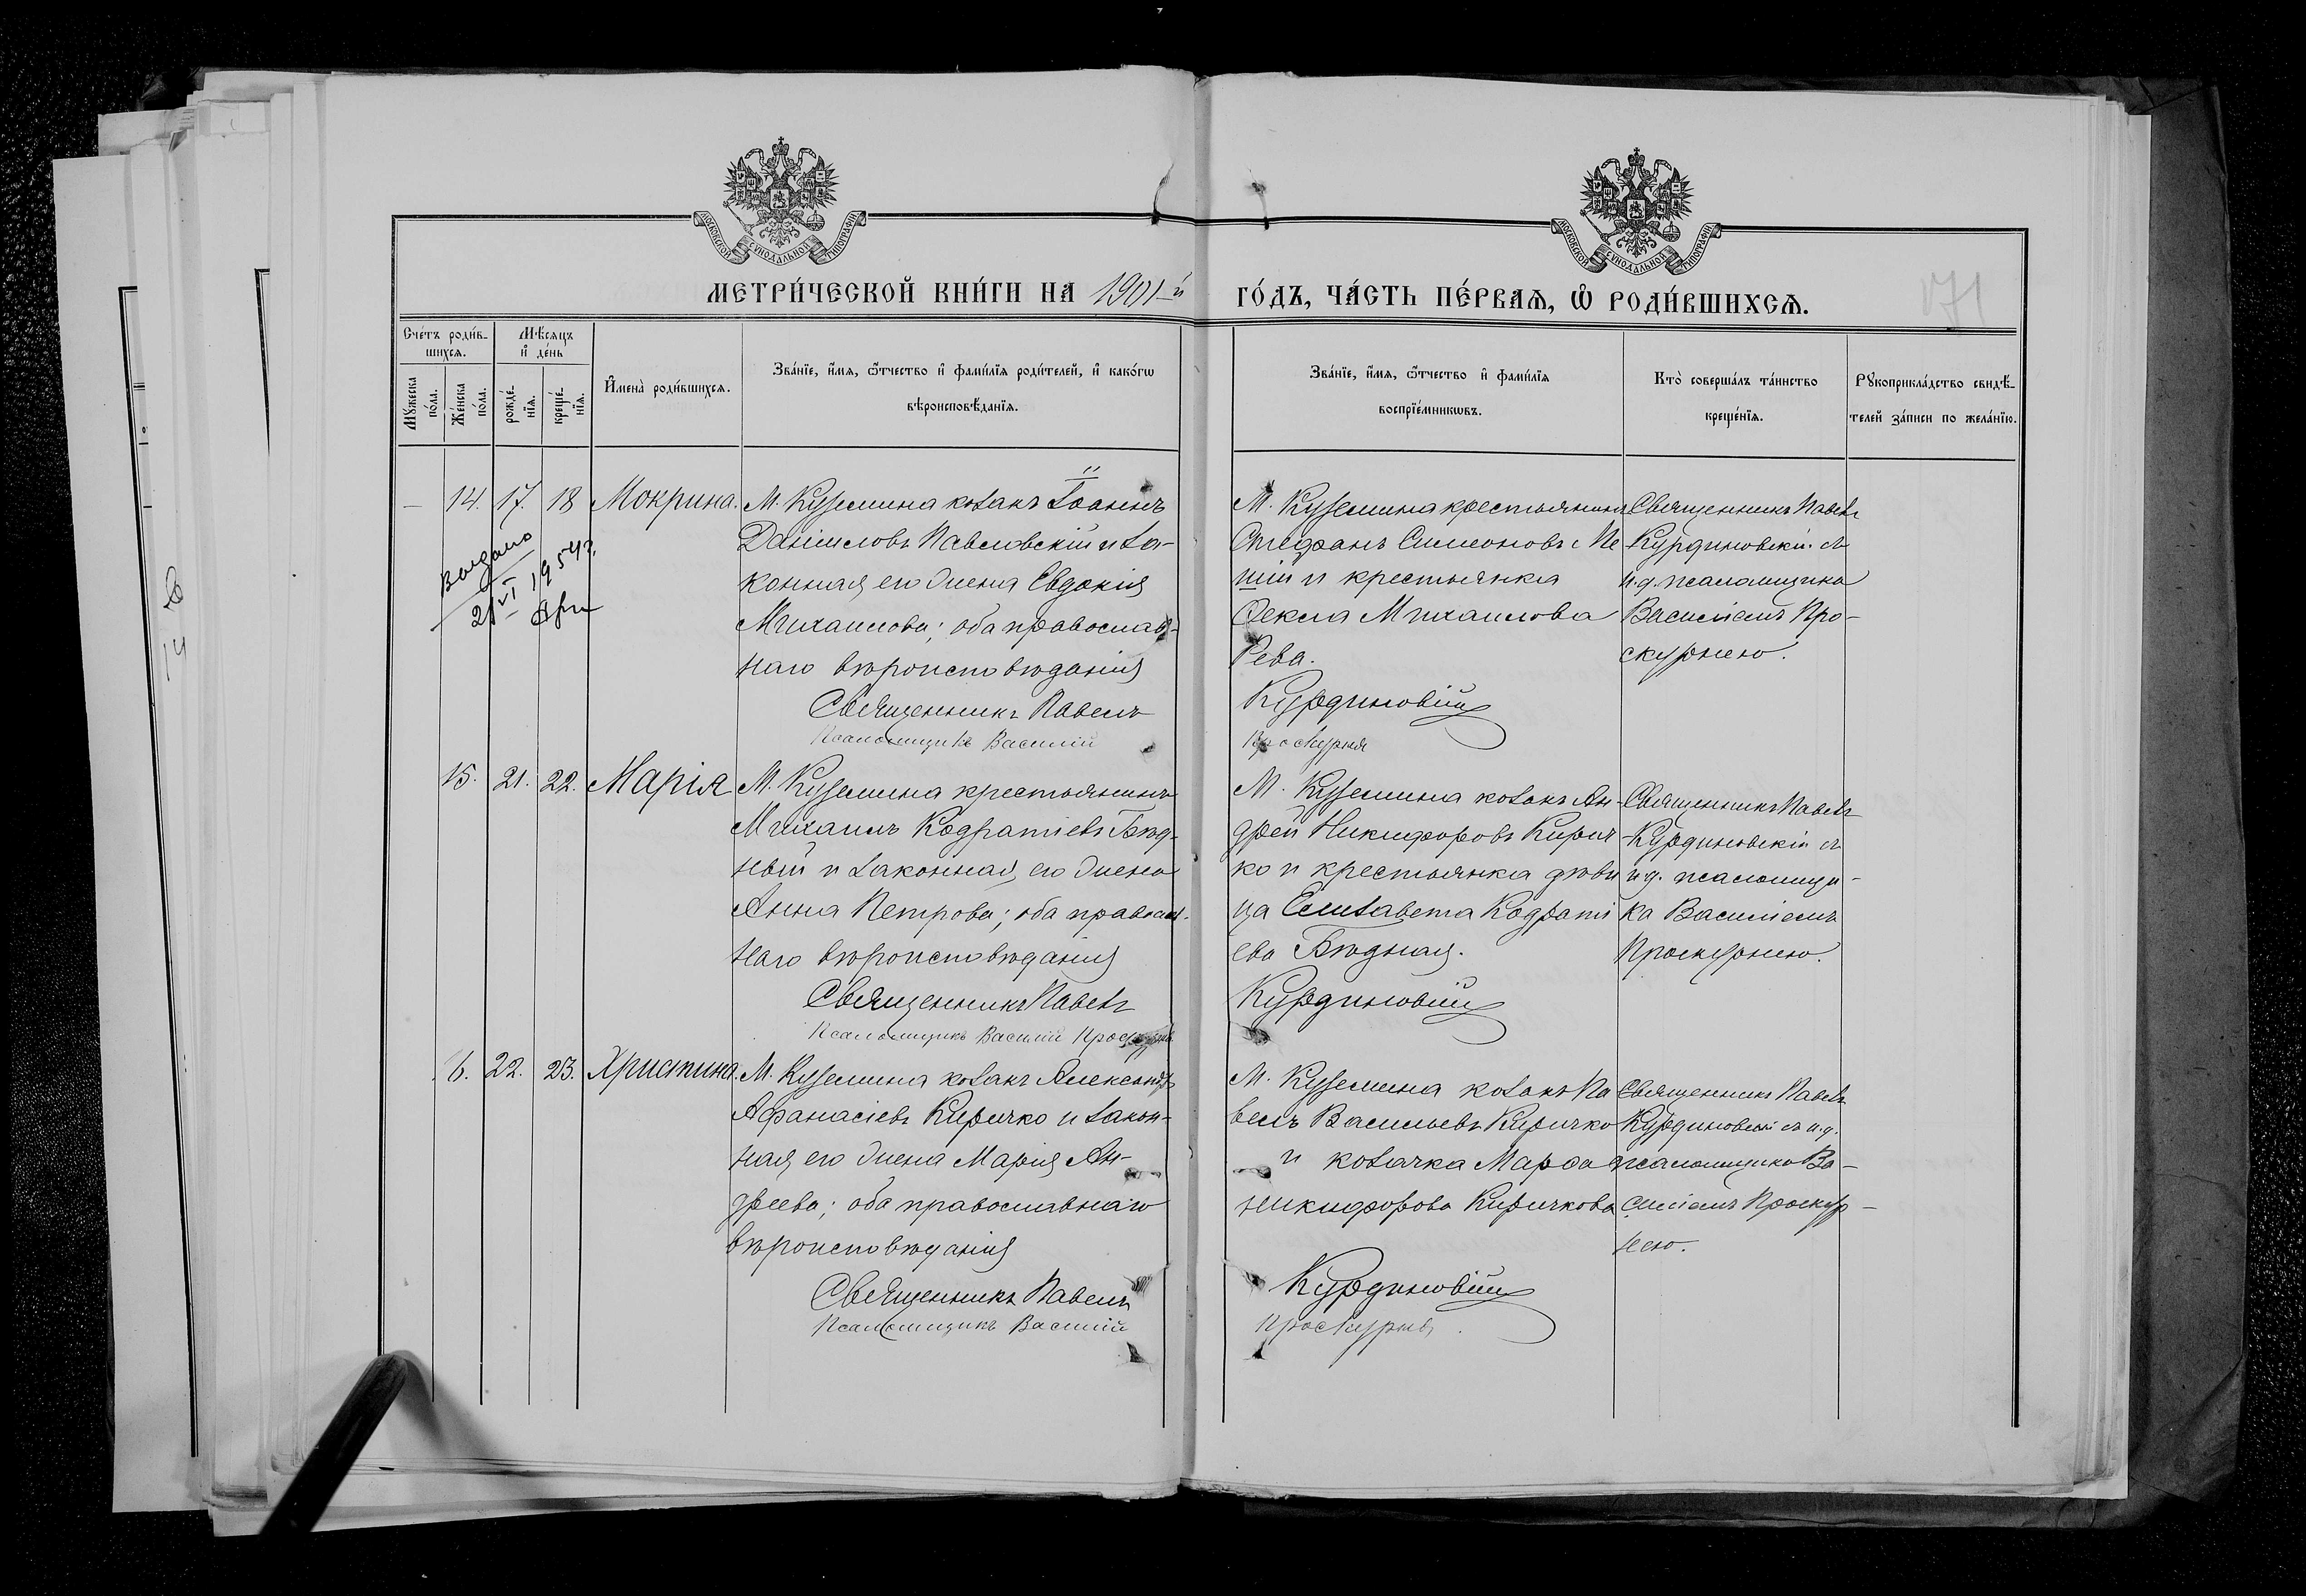 МОСКОВСКОЙ СѴНОДАЛЬНОЙ ТИПОГРАФІИ
МОСКОВСКОЙ СѴНОДАЛЬНОЙ ТИПОГРАФІИ
МЕТРИ́ЧЕСКОЙ КНИ́ГИ НА 1901-й ГО́ДЪ, ЧА́СТЬ ПЕ́РВАѦ, Ѽ РОДИ́ВШИХСѦ.
171
Сче́тъ роди́в-
шихсѧ.
Мꙋ́жеска по́ла.
Же́нска по́ла.
Мѣ́сѧцъ и де́нь
рожде́-нїѧ.
креще́-нїѧ.
Имена̀ роди́вшихсѧ.
Зва́нїе, и́мѧ, ѻ́тчество и фами́лїѧ роди́телей, и како́гѡ
вѣроисповѣ́данїѧ.
Зва́нїе, и́мѧ, ѻ́тчество и фами́лїѧ
воспрїе́мникѡвъ.
Кто̀ соверша́лъ та́инство
креще́нїѧ.
Рꙋкоприкла́дство свидѣ́-
телей за́писи по жела́нїю.
— 14. 17. 18 Мокрина.
М. Куземина козакъ Іоаннъ
Даніиловъ Павловскій и за-
конная его жена Евдокія
Михаилова; оба православ-
наго вѣроисповѣданія
Священникъ Павелъ
Псаломщикъ Василій
М. Куземина крестьянинъ
Стефанъ Симеоновъ
и крестьянка
Ѳекла Михаилова
Рева.
Курдиновскій
Проскурня
Священникъ Павелъ
Курдиновскій съ
и.д. псаломщика
Василіемъ Про-
скурнею.
Выдано
21 VI 1954 г.
15. 21. 22. Марія
М. Куземина крестьянинъ
Михаилъ Кодратіевъ Бѣд-
ный и законная его жена
Анна Петрова; оба православ-
наго вѣроисповѣданія
Священникъ Павелъ
Псаломщикъ Василій Проскурня
М. Куземина козакъ Ан-
дрей Никифоровъ Кирич
ко и крестьянка дѣви
ца Елизавета Кодраті
ева Бѣдная.
Курдиновскій
Священникъ Павелъ
Курдиновскій съ
и.д. псаломщи-
ка Василіемъ
Проскурнею.
16. 22. 23. Христина.
М. Куземина козакъ Александръ
Афанасіевъ Киричко и закон-
ная его жена Марія Ан-
дреева; оба православнаго
вѣроисповѣданія
Священникъ Павелъ
Псаломщикъ Василій
М. Куземина козакъ Па
велъ Васильевъ Киричко
и козачка Марѳа
Никифорова Киричкова
Курдиновскій
Проскурня
Священникъ Павелъ
Курдиновскій съ и.д.
псаломщика Ва-
силіемъ Проскур-
нею.